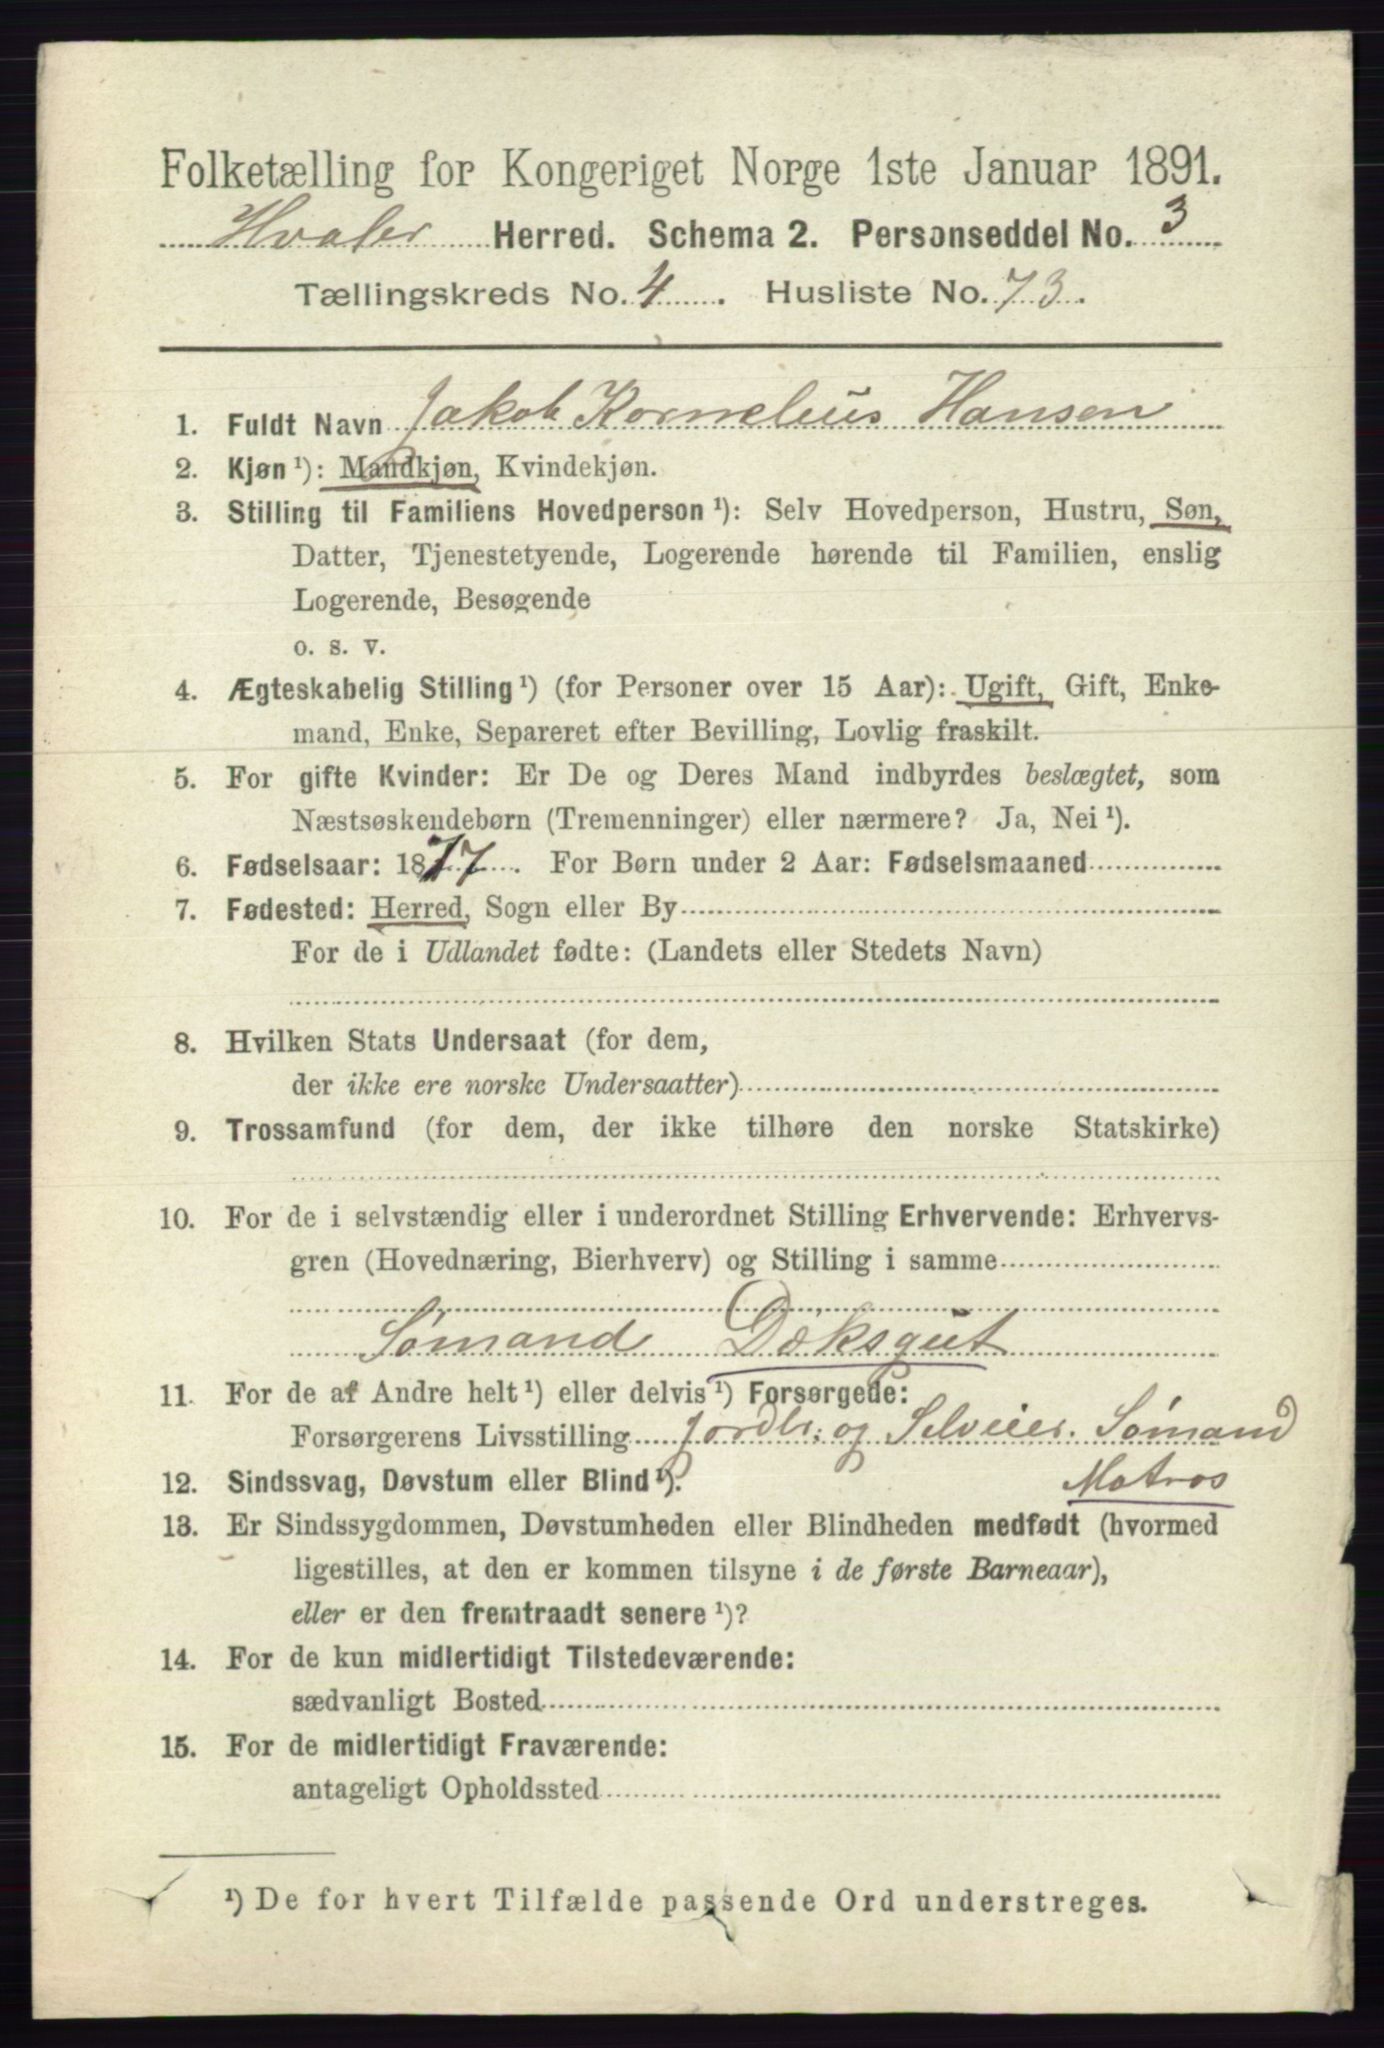 Folketælling for Kongeriget Norge 1ste Januar 1891.
Hvaler Herred. Schema 2. Personseddel No. 3
Tællingskreds No. 4. Husliste No. 73.
1. Fuldt Navn Jakob Kornelius Hansen
2. Kjøn ¹): Mandkjøn, Kvindekjøn.
3. Stilling til Familiens Hovedperson ¹): Selv Hovedperson, Hustru, Søn,
Datter, Tjenestetyende, Logerende hørende til Familien, enslig
Logerende, Besøgende
o. s. v.
4. Ægteskabelig Stilling ¹) (for Personer over 15 Aar): Ugift, Gift, Enke-
mand, Enke, Separeret efter Bevilling, Lovlig fraskilt.
5. For gifte Kvinder: Er De og Deres Mand indbyrdes beslægtet, som
Næstsøskendebørn (Tremenninger) eller nærmere? Ja, Nei ¹).
6. Fødselsaar: 1877. For Børn under 2 Aar: Fødselsmaaned
7. Fødested: Herred, Sogn eller By
For de i Udlandet fødte: (Landets eller Stedets Navn)
8. Hvilken Stats Undersaat (for dem,
der ikke ere norske Undersaatter)
9. Trossamfund (for dem, der ikke tilhøre den norske Statskirke)
10. For de i selvstændig eller i underordnet Stilling Erhvervende: Erhvervs-
gren (Hovednæring, Bierhverv) og Stilling i samme
Sømand Dæksgut
11. For de af Andre helt ¹) eller delvis ¹) Forsørgede:
Forsørgerens Livsstilling Jordbr. og Selveier. Sømand
12. Sindssvag, Døvstum eller Blind ¹). Matros
13. Er Sindssygdommen, Døvstumheden eller Blindheden medfødt (hvormed
ligestilles, at den er kommen tilsyne i de første Barneaar),
eller er den fremtraadt senere ¹)?
14. For de kun midlertidigt Tilstedeværende:
sædvanligt Bosted
15. For de midlertidigt Fraværende:
antageligt Opholdssted
¹) De for hvert Tilfælde passende Ord understreges.